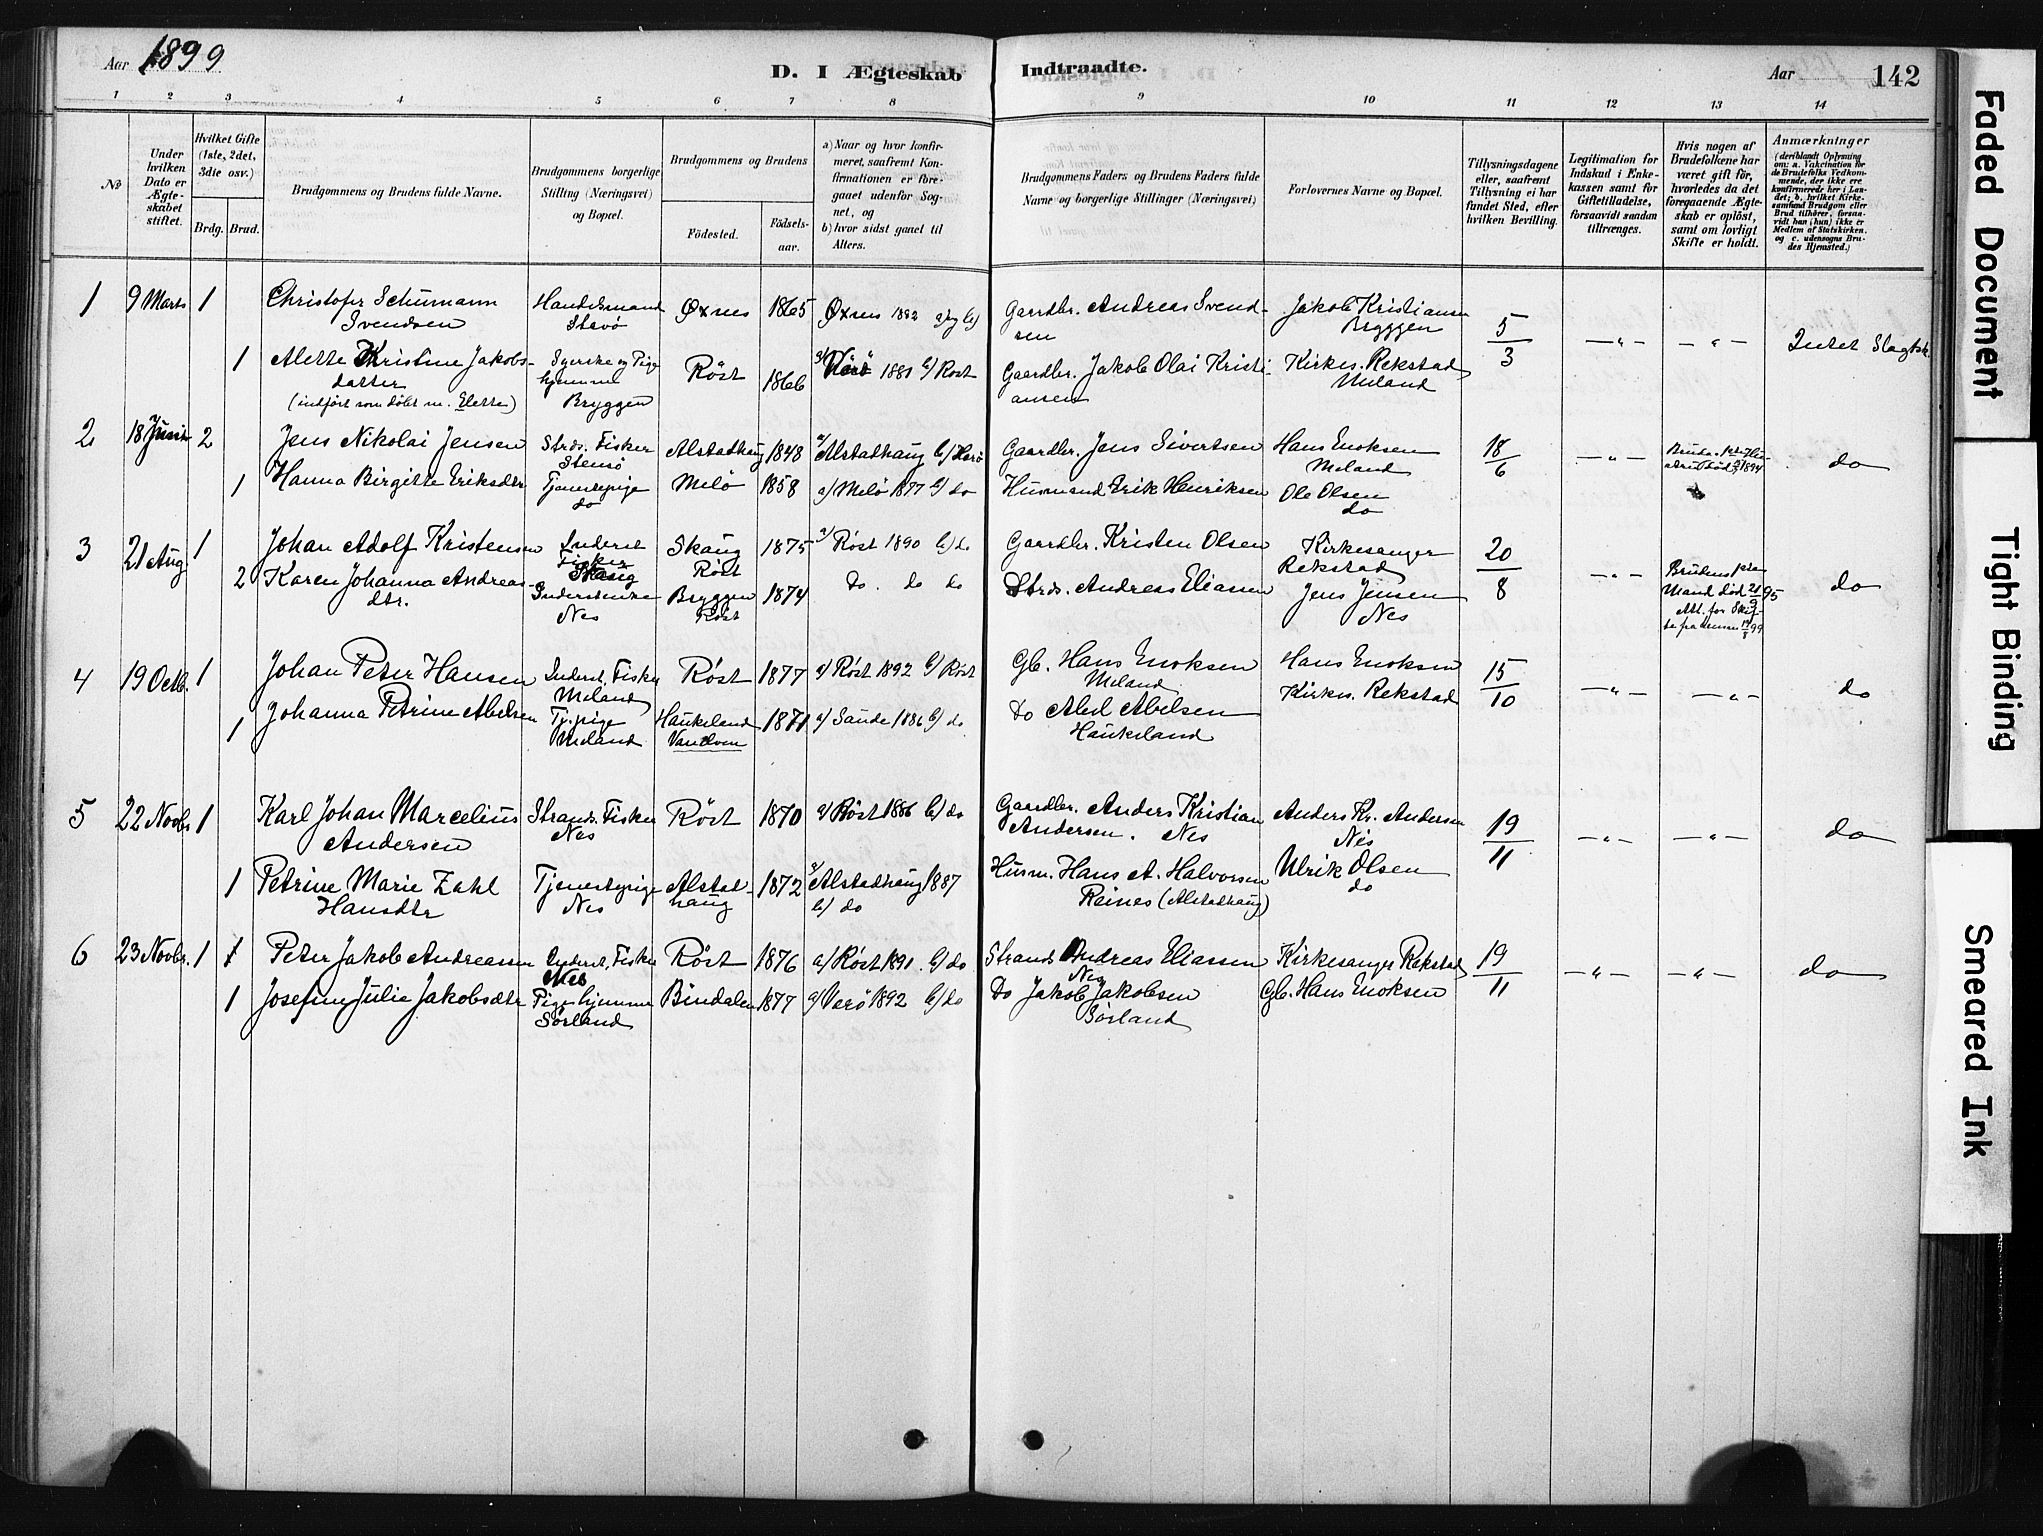 Aar 1899
D. I Ægteskab Indtraadte.
Aar 142
1 2 3 4 5 6 7 8 9 10 11 12 13 14
№
Under hvilken Dato er Ægteskabet stiftet.
Hvilket Gifte (1ste, 2det, 3die osv.)
Brdg. Brud.
Brudgommens og Brudens fulde Navne.
Brudgommens borgerlige Stilling (Næringsvei) og Bopæl.
Brudgommens og Brudens
Födested.
Födsels-aar.
a) Naar og hvor konfirmeret, saafremt Konfirmationen er foregaaet udenfor Sognet, og
b) hvor sidst gaaet til Alters.
Brudgommens Faders og Brudens Faders fulde Navne og borgerlige Stillinger (Næringsvei)
Forlovernes Navne og Bopæl.
Tillysningsdagene eller, saafremt Tillysning ei har fundet Sted, efter hvilken Bevilling.
Legitimation for Indskud i Enkekassen samt for Giftetilladelse, forsaavidt saadan tiltrænges.
Hvis nogen af Brudefolkene har været gift før, hvorledes da det foregaaende Ægteskab er oplöst, samt om lovligt Skifte er holdt.
Anmærkninger
(deriblandt Oplysning om: a. Vakcination for de Brudefolks Vedkommende, der ikke ere konfirmerede her i Landet; b. hvilket Kirkesamfund Brudgom eller Brud tilhører, forsaavidt han (hun) ikke er Medlem af Statskirken. og c. udensogns Brudes Hjemsted.)
1 9 Marts 1 Christofer Schumann Handelsmand Øxnes 1865 Øxnes 1882 Gaardbr. Andreas Svend- Jakob Kristiansen 5/3 Intet Slagtsk.
Svendsen Stavø sen Bryggen
1 Alette Kristine Jakobs- Syerske og Pige Röst 1866 a) Værö 1881 b) Röst Gaardbr. Jakob Olai Kristi- Kirkes. Rekstad
datter hjemme ansen Meland
(indført som döbt m. Elette) Bryggen
2 18 Juni 2 Jens Nikolai Jensen Strds. Fisker Alstadhaug 1848 a) Alstadhaug b) Herö Gaardbr. Jens Sivertsen Hans Enoksen 18/6 do
Stensö Meland
1 Hanna Birgitte Eriksdtr Tjenestepige Melö 1858 a) Melö 1877 b) do Husmand Erik Henriksen Ole Olsen
do do
3 21 Aug. 1 Johan Adolf Kristensen Inderst Skaug 1875 a) Røst 1890 b) do Gaardbr. Kristen Olsen Kirkesanger 20/8 do
Fisker Røst Rekstad
Skaug
2 Karen Johanna Andreas- Inderstenke Bryggen 1874 do. do do Strds. Andreas Eliassen Jens Jensen Brudens 1ste
dtr. Nes Röst Nes Mand död 21/9 95
Att. for Skif-
te fra
4 19 Octb. 1 Johan Peter Hansen Inderst, Fisker Röst 1877 a) Röst 1892 b) Röst Gb. Hans Enoksen Hans Enoksen 15/10 do
Meland Meland
1 Johanna Petrine Abelsen Tj. pige Haukeland 1871 a) Sande 1886 b) do Do Abel Abelsen Kirkes. Rekstad
Meland Vandven Haukeland
5 22 Novbr 1 Karl Johan Marcelius Strands. Fisker Röst 1870 a) Röst 1886 b) do Gaardbr. Anders Kristian Anders Kr. Andersen 19/11 do
Andersen Nes Andersen. Nes Nes
1 Petrine Marie Zahl Tjenestepige Alstad- 1872 a) Alstadhaug 1887 Husm. Hans A. Halvorsen Ulrik Olsen
Hansdtr Nes haug b) do Reines (Alstadhaug) do
6 23 Novbr. 1 Peter Jakob Andreassen Inderst, Fisker Röst 1876 a) Röst 1891. b) do Strands Andreas Eliassen Kirkesanger Rekstad 19/11 do
Nes Nes
1 Josefine Julie Jakobsdtr Pige hjemme Bindalen 1877 a) Værö 1892 b) do Do Jakob Jakobsen Gb. Hans Enoksen
Sørland Sørland
Faded Document
Tight Binding
Smeared Ink